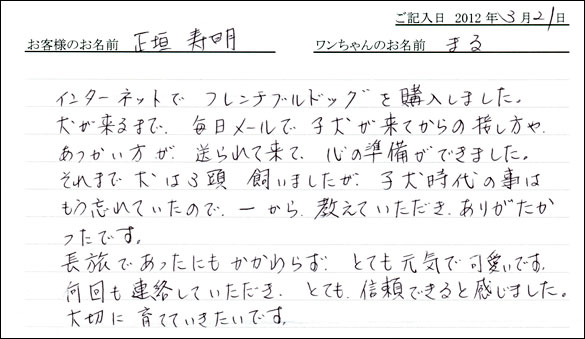 ご記入日 2012年3月21日
お客様のお名前 正垣 寿明 ワンちゃんのお名前 まる
インターネットで フレンチブルドッグを購入しました。
犬が来るまで、毎日メールで 子犬が来てからの接し方や、
あつかい方が、送られて来て、心の準備ができました。
それまで 犬は3頭 飼いましたが、子犬時代の事は
もう忘れていたので、一から、教えていただき、ありがたか
ったです。
長旅であったにもかかわらず、とても元気で可愛いです。
何回も連絡していただき、とても、信頼できると感じました。
大切に育てていきたいです。